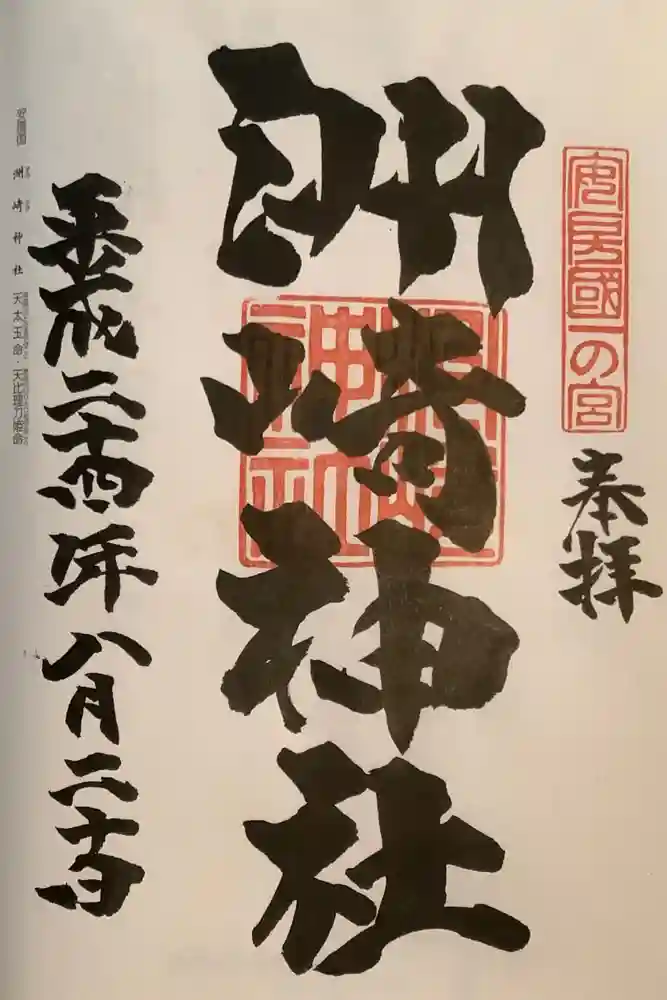 安房國一の宮
奉拝
洲崎神社
平成二十四年八月二十日
安房国 洲崎神社 天太玉命・天比理刀咩命